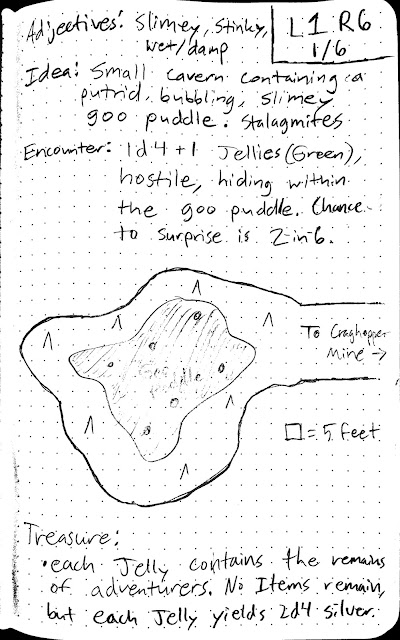 Adjectives: Slimey, Stinky,
wet/damp
L1 R6
1/6
Idea: Small cavern containing a
putrid, bubbling, slimey
goo puddle. Stalagmites
Encounter: 1d4+1 Jellies (Green),
hostile, hiding within
the goo puddle. Chance
to surprise is 2 in 6.
To Craghopper
Mine →
Goo
puddle
□ = 5 feet
Treasure:
• each Jelly contains the remains
of adventurers. No Items remain,
but each Jelly yields 2d4 silver.